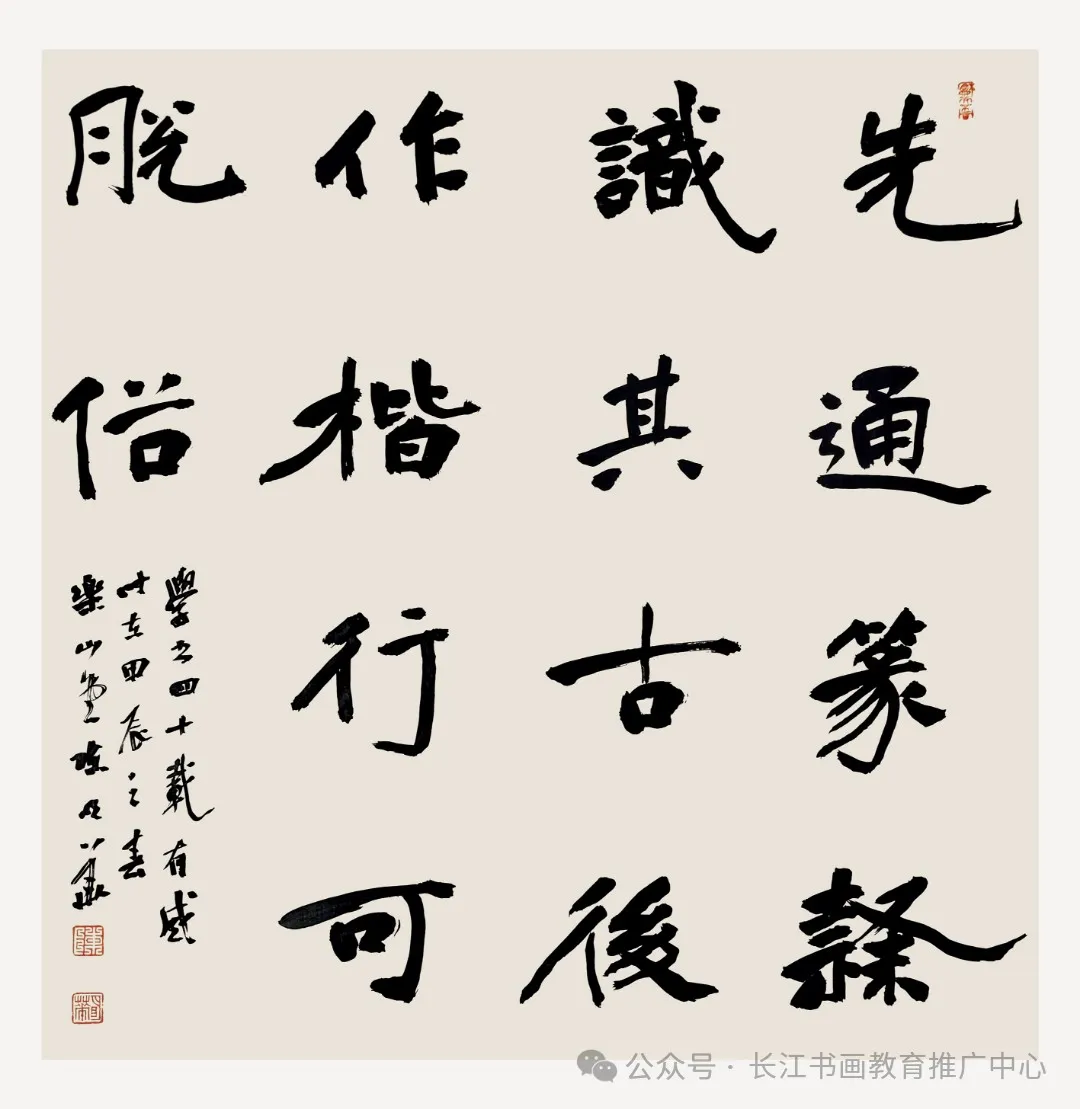 先通篆隸
識其古後
作楷行可
脫俗
學書四十載有感
時在甲辰之春
樂山堂陳明華
公众号·长江书画教育推广中心